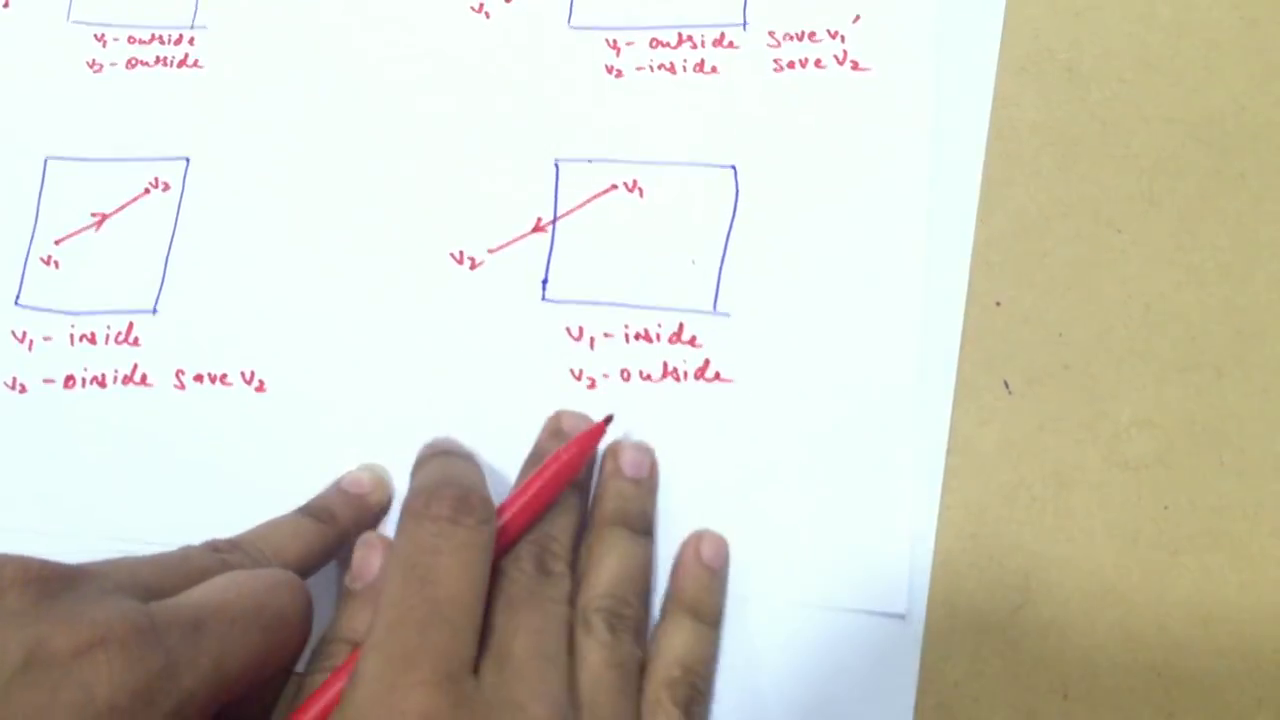 v₁
v₁ - outside
v₂ - outside
v₁ - outside save v₁'
v₂ - inside save v₂
v₂
v₁
v₁ - inside
v₂ - oinside save v₂
v₁
v₂
v₁ - inside
v₂ - outside